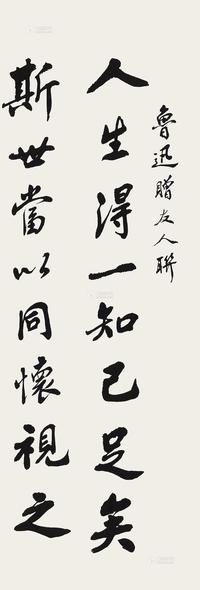 魯迅贈友人聯
人生得一知己足矣
斯世當以同懷視之